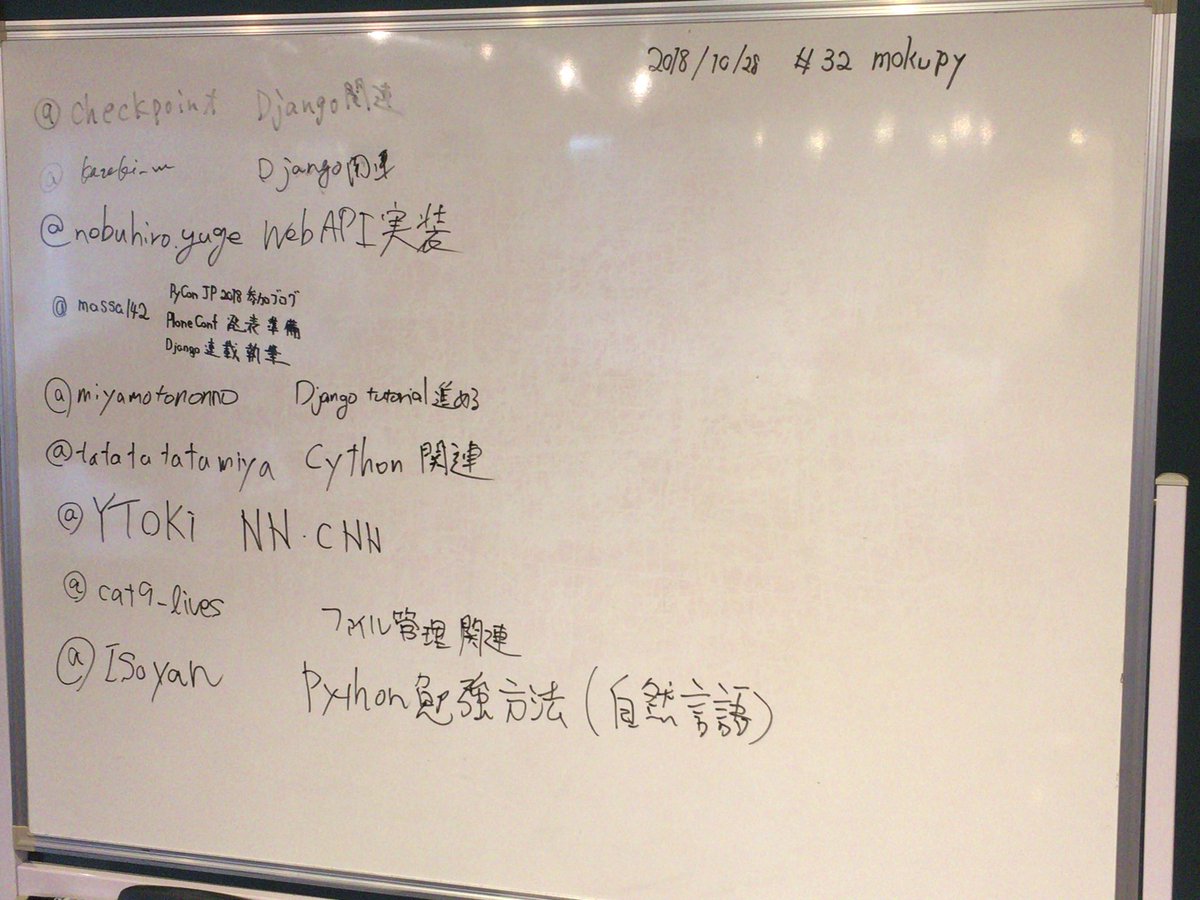 2018/10/28 #32 mokupy
@checkpoint Django関連
@ Django関連
@nobuhiro.yuge Web API 実装
@massa142 PyCon JP 2018 参加ブログ
PloneConf 発表準備
Django 連載執筆
@miyamotononno Django tutorial 進める
@tatatatatamiya Cython 関連
@YToki NN・CNN
@cat9_lives ファイル管理関連
@Isoyan Python勉強方法(自然言語)